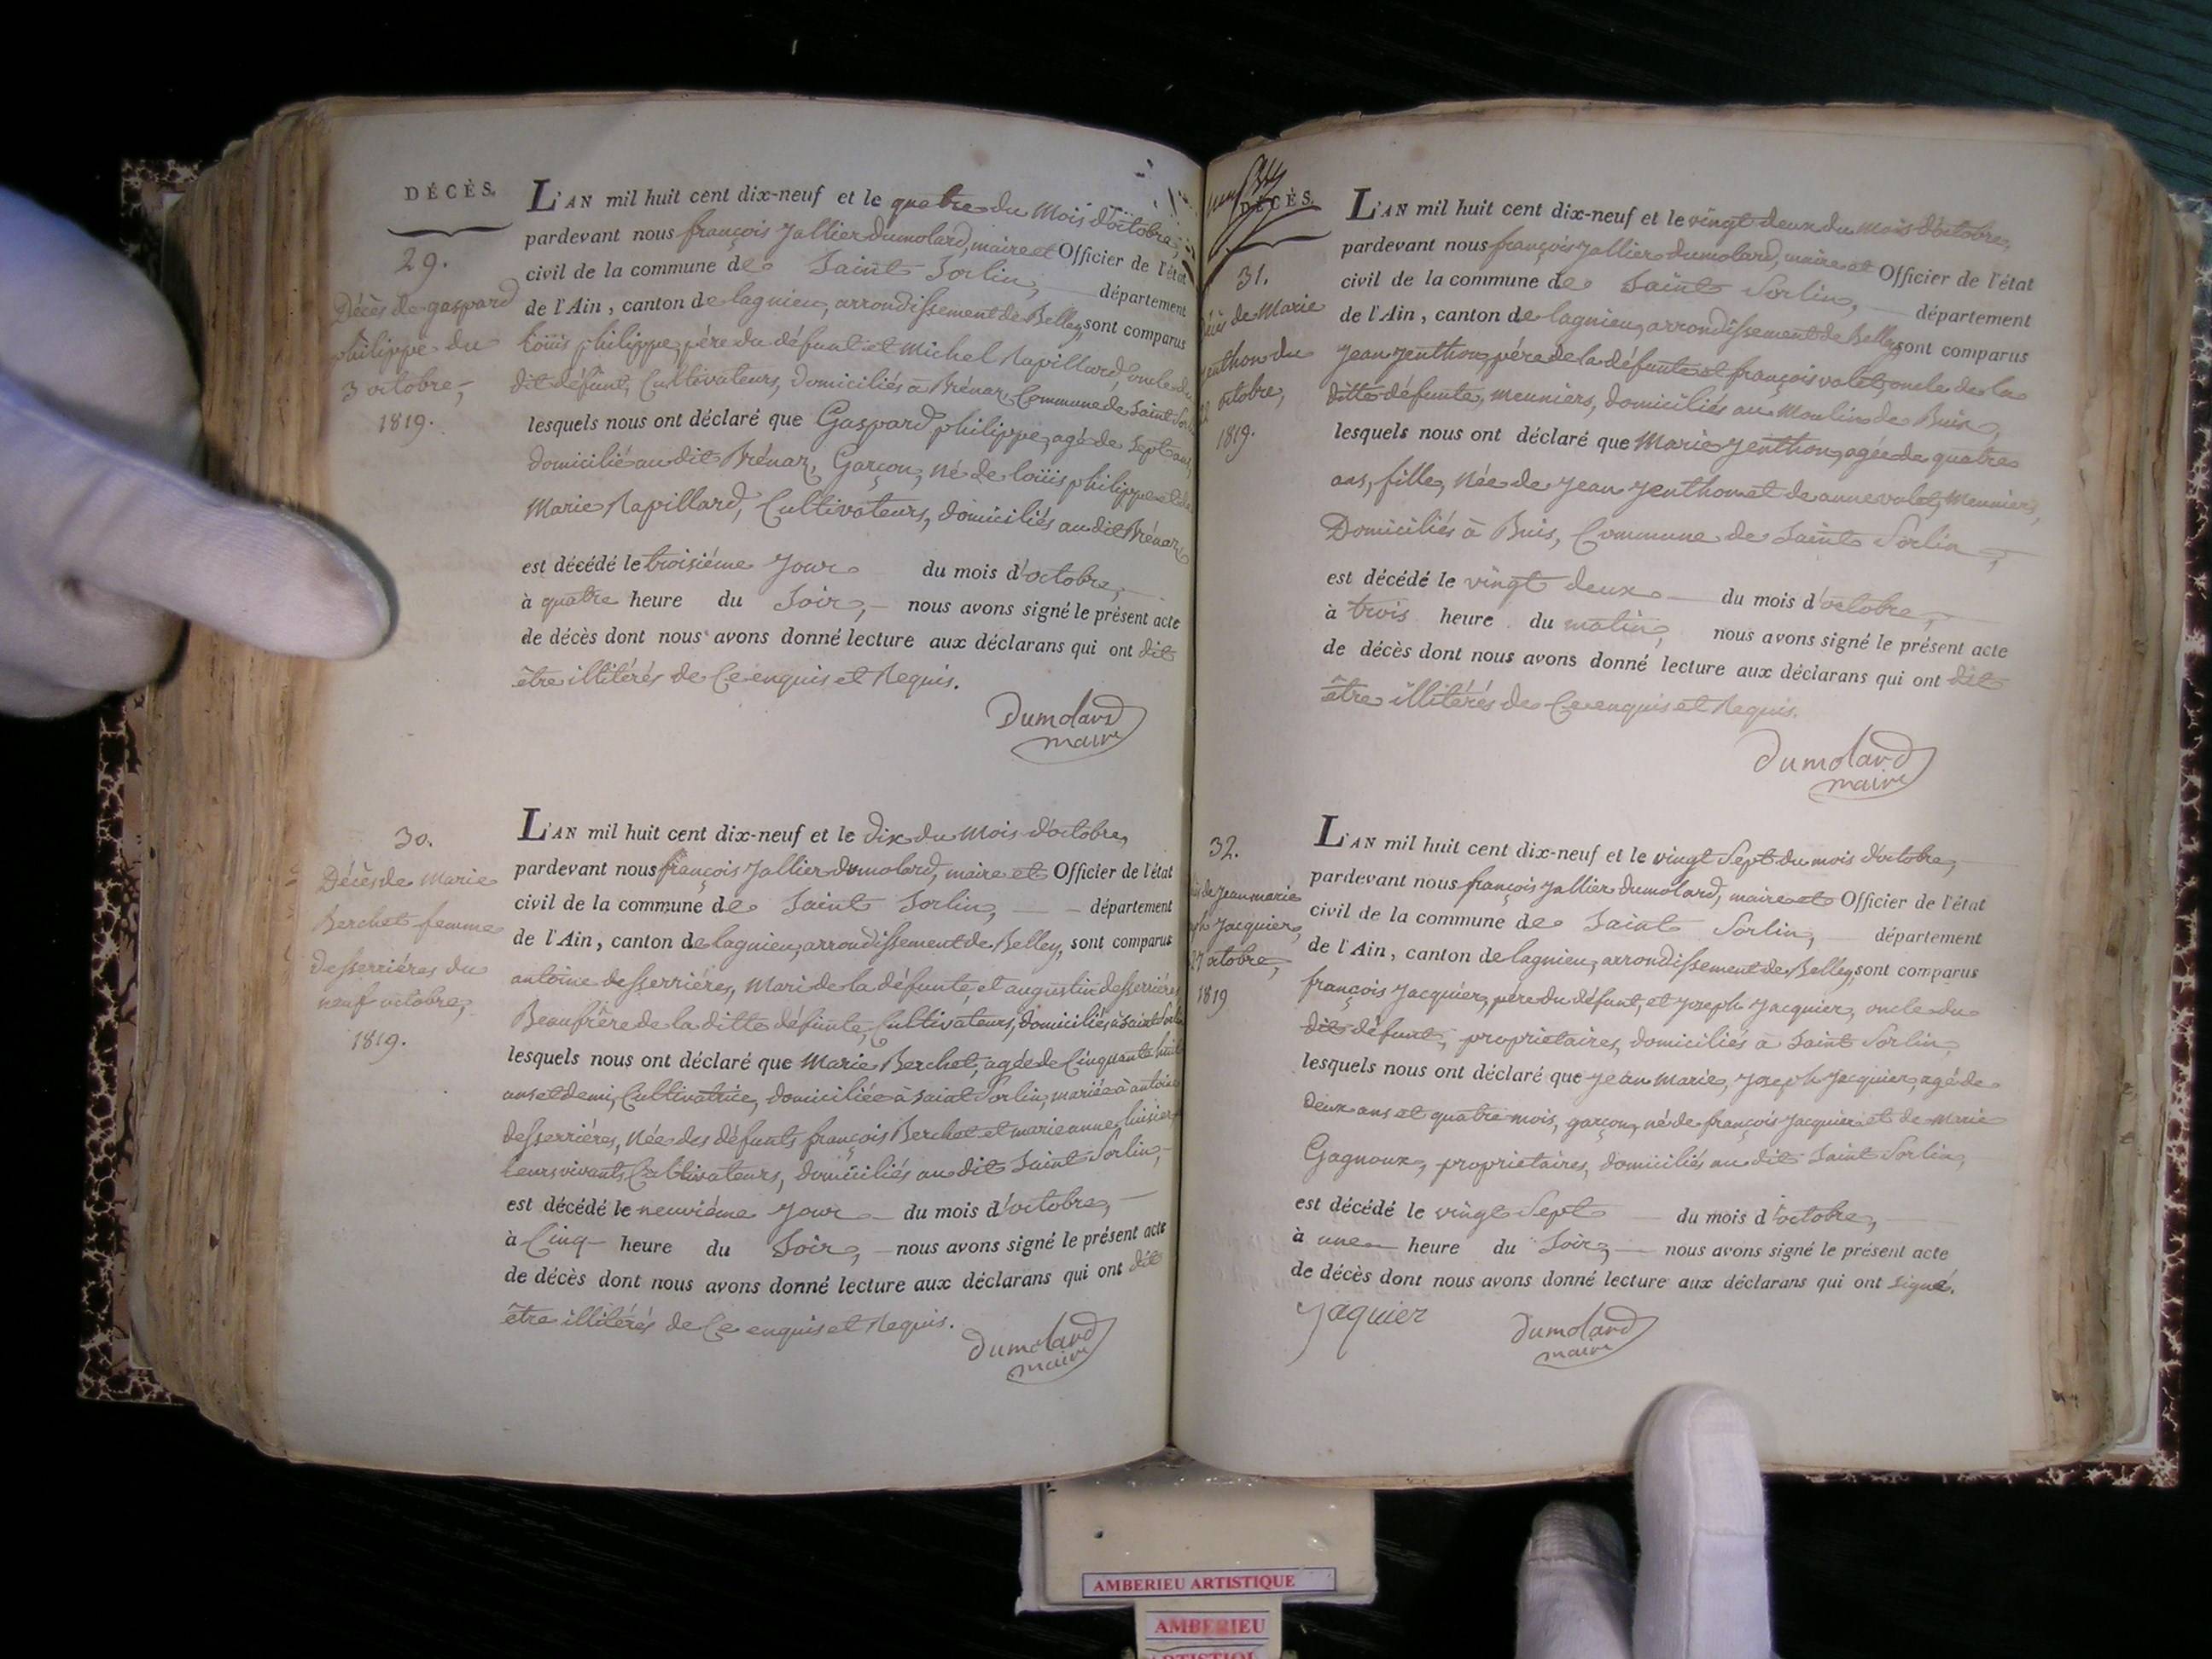 DÉCÈS.
29.
Décès de gaspard
philippe du
3 octobre,
1819.
L'AN mil huit cent dix-neuf et le quatre du mois d'octobre,
pardevant nous françois jallier dumolard, maire et Officier de l'état
civil de la commune de Saint Sorlin, département
de l'Ain, canton de lagnieu, arrondissement de Belley, sont comparus
loüis philippe, pére du défunt et Michel Rapillard, oncle du
dit défunt, Cultivateurs, domiciliés à Brénaz, Commune de Saint Sorlin
lesquels nous ont déclaré que Gaspard philippe, agé de Sept ans,
domicilié au dit Brénaz, Garçon, né de loüis philippe et de
Marie Rapillard, Cultivateurs, domiciliés au dit Brénaz
est décédé le troisiéme jour du mois d'octobre,
à quatre heure du Soir, nous avons signé le présent acte
de décès dont nous avons donné lecture aux déclarans qui ont dit
être illitérés de Ce enquis et Requis.
Dumolard
maire
30.
Décès de Marie
Berchet femme
desserriéres du
neuf octobre,
1819.
L'AN mil huit cent dix-neuf et le dix du mois d'octobre,
pardevant nous françois jallier dumolard, maire et Officier de l'état
civil de la commune de Saint Sorlin, département
de l'Ain, canton de lagnieu, arrondissement de Belley, sont comparus
antoine desserriéres, Mari de la défunte, et augustin desserriéres
Beaufrère de la ditte défunte, Cultivateurs, domiciliés à Saint Sorlin
lesquels nous ont déclaré que Marie Berchet, agée de Cinquante huit
ans et demi, Cultivatrice, domiciliée à Saint Sorlin, mariée à antoine
desserriéres, née des défunts françois Berchet et marie anne
leurs vivants Cultivateurs, domiciliés au dit Saint Sorlin,
est décédé le neuviéme jour du mois d'octobre,
à Cinq heure du Soir, nous avons signé le présent acte
de décès dont nous avons donné lecture aux déclarans qui ont dit
être illitérés de Ce enquis et Requis.
Dumolard
maire
DÉCÈS.
31.
de Marie
jenthon du
22 octobre,
1819.
L'AN mil huit cent dix-neuf et le vingt deux du mois d'octobre,
pardevant nous françois jallier dumolard, maire et Officier de l'état
civil de la commune de Saint Sorlin, département
de l'Ain, canton de lagnieu, arrondissement de Belley, sont comparus
jean jenthon, pére de la défunte et françois valet, oncle de la
ditte défunte, meuniers, domiciliés au Moulin de Buis,
lesquels nous ont déclaré que Marie jenthon, agée de quatre
ans, fille, Née de jean jenthon et de anne valet, Meuniers,
Domiciliés à Buis, Commune de Saint Sorlin,
est décédé le vingt deux du mois d'octobre,
à trois heure du matin, nous avons signé le présent acte
de décès dont nous avons donné lecture aux déclarans qui ont dit
être illitérés de Ce enquis et Requis.
Dumolard
maire
32.
de jean marie
jacquier,
27 octobre,
1819
L'AN mil huit cent dix-neuf et le vingt Sept du mois d'octobre,
pardevant nous françois jallier dumolard, maire et Officier de l'état
civil de la commune de Saint Sorlin, département
de l'Ain, canton de lagnieu, arrondissement de Belley, sont comparus
françois jacquier, pére du défunt, et joseph jacquier, oncle du
dit défunt, propriétaires, domiciliés à Saint Sorlin,
lesquels nous ont déclaré que jean marie, joseph jacquier, agé de
Deux ans et quatre mois, garçon, né de françois jacquier et de Marie
Gagnoux, propriétaires, domiciliés au dit Saint Sorlin,
est décédé le vingt Sept du mois d'octobre,
à une heure du Soir, nous avons signé le présent acte
de décès dont nous avons donné lecture aux déclarans qui ont signé.
Jaquier Dumolard
maire
AMBERIEU ARTISTIQUE
AMBERIEU
ARTISTIQUE